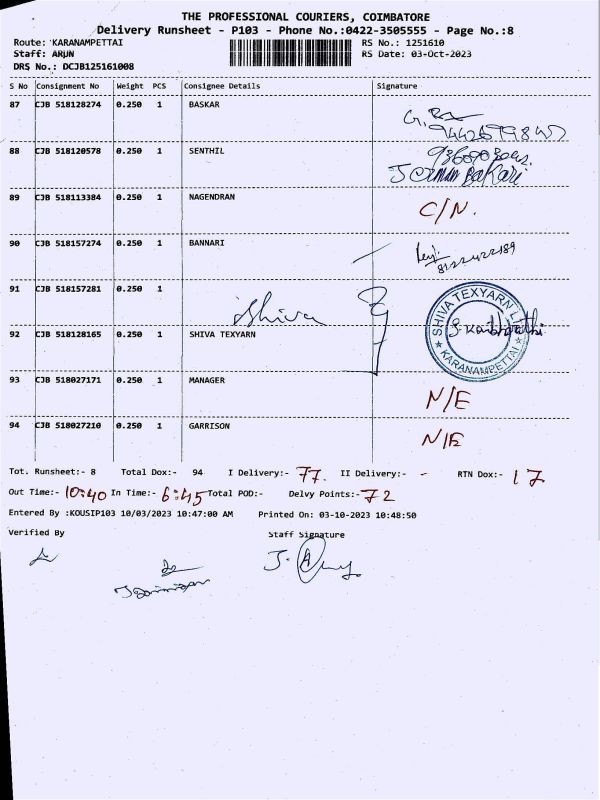 THE PROFESSIONAL COURIERS, COIMBATORE
Delivery Runsheet - P103 - Phone No.:0422-3505555 - Page No.:8
Route: KARANAMPETTAI RS No.: 1251610
Staff: ARJUN RS Date: 03-Oct-2023
DRS No.: DCJB125161008
S No Consignment No Weight PCS Consignee Details Signature
87 CJB 518128274 0.250 1 BASKAR
88 CJB 518120578 0.250 1 SENTHIL
89 CJB 518113384 0.250 1 NAGENDRAN C/N.
90 CJB 518157274 0.250 1 BANNARI
8122422189
91 CJB 518157281 0.250 1
Shiva
SHIVA TEXYARN
KARANAMPETTAI
92 CJB 518128165 0.250 1 SHIVA TEXYARN
93 CJB 518027171 0.250 1 MANAGER N/E
94 CJB 518027210 0.250 1 GARRISON N/E
Tot. Runsheet:- 8 Total Dox:- 94 I Delivery:- 77. II Delivery:- - RTN Dox:- 17
Out Time:- 10:40 In Time:- 6:45 Total POD:- Delvy Points:- 72
Entered By :KOUSIP103 10/03/2023 10:47:00 AM Printed On: 03-10-2023 10:48:50
Verified By Staff Signature